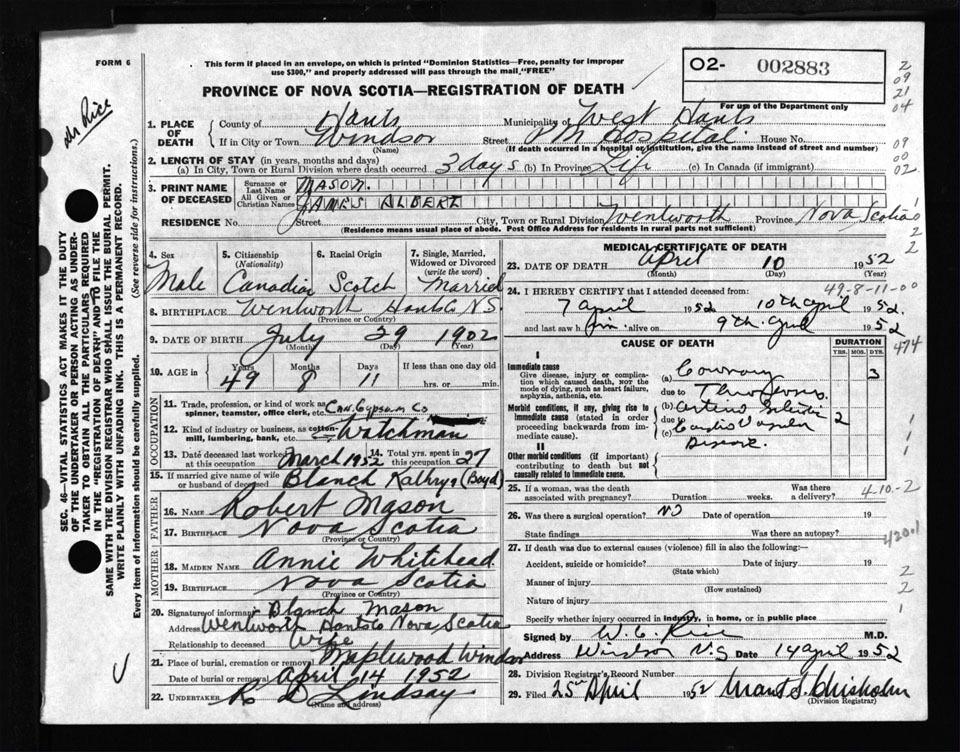 FORM 6
This form if placed in an envelope, on which is printed "Dominion Statistics—Free, penalty for improper
use $300," and properly addressed will pass through the mail "FREE"
PROVINCE OF NOVA SCOTIA—REGISTRATION OF DEATH
O2- 002883
For use of the Department only
2
09
21
04
09
00
02
1
2
2
Dr Rice
SEC. 46—VITAL STATISTICS ACT MAKES IT THE DUTY
OF THE UNDERTAKER OR PERSON ACTING AS UNDER-
TAKER TO OBTAIN ALL THE PARTICULARS REQUIRED
IN THE "REGISTRATION OF DEATH" AND TO FILE THE
SAME WITH THE DIVISION REGISTRAR WHO SHALL ISSUE THE BURIAL PERMIT.
WRITE PLAINLY WITH UNFADING INK. THIS IS A PERMANENT RECORD.
Every item of information should be carefully supplied. (See reverse side for instructions.)
1. PLACE OF DEATH
County of Hants Municipality of West Hants
If in City or Town Windsor Street PM Hospital House No.
(Name) (If death occurred in a hospital or institution, give the name instead of street and number)
2. LENGTH OF STAY (in years, months and days)
(a) In City, Town or Rural Division where death occurred 3 days (b) In Province Life (c) In Canada (if immigrant)
3. PRINT NAME OF DECEASED
Surname or Last Name MASON.
All Given or Christian Names JAMES ALBERT
RESIDENCE No. Street City, Town or Rural Division Wentworth Province Nova Scotia
(Residence means usual place of abode. Post Office Address for residents in rural parts not sufficient)
4. Sex Male
5. Citizenship (Nationality) Canadian
6. Racial Origin Scotch
7. Single, Married, Widowed or Divorced (write the word) Married
8. BIRTHPLACE Wentworth Hants Co N.S.
(Province or Country)
9. DATE OF BIRTH July 29 1902
(Month) (Day) (Year)
10. AGE in Years 49 Months 8 Days 11 If less than one day
hrs. or min.
OCCUPATION
11. Trade, profession, or kind of work as spinner, teamster, office clerk, etc. Can. Gypsum Co
12. Kind of industry or business, as cotton-mill, lumbering, bank, etc. Watchman
13. Date deceased last worked at this occupation March 1952 14. Total yrs. spent in this occupation 27
15. If married give name of wife or husband of deceased Blanch Kathryn (Boyd)
FATHER
16. NAME Robert Mason
17. BIRTHPLACE Nova Scotia
(Province or Country)
MOTHER
18. MAIDEN NAME Annie Whitehead
19. BIRTHPLACE Nova Scotia
(Province or Country)
20. Signature of informant Blanch Mason
Address Wentworth Hants Co Nova Scotia
Relationship to deceased Wife
21. Place of burial, cremation or removal Maplewood Windsor
Date of burial or removal April 14 1952
22. UNDERTAKER R D Lindsay
(Name and address)
MEDICAL CERTIFICATE OF DEATH
23. DATE OF DEATH April 10 1952
(Month) (Day) (Year)
49-8-11-00
24. I HEREBY CERTIFY that I attended deceased from:
7 April 1952 10th April 1952
and last saw him alive on 9th April 1952
474
CAUSE OF DEATH DURATION
YRS. MOS. DYS.
I
Immediate cause
Give disease, injury or complication which caused death, NOT the mode of dying, such as heart failure, asphyxia, asthenia, etc.
(a) Coronary 3
due to Thrombosis
Morbid conditions, if any, giving rise to immediate cause (stated in order proceeding backwards from immediate cause).
(b) Arterio Sclerotic
due to
(c) Cardio Vascular 2
Disease.
II
Other morbid conditions (if important) contributing to death but not causally related to immediate cause.
25. If a woman, was the death associated with pregnancy? Duration weeks. Was there a delivery?
4-10-2
26. Was there a surgical operation? NO Date of operation 19
State findings Was there an autopsy?
420.1
27. If death was due to external causes (violence) fill in also the following:—
Accident, suicide or homicide? Date of injury 19
(State which)
Manner of injury
(How sustained)
Nature of injury
Specify whether injury occurred in industry, in home, or in public place
2
2
1
Signed by W. C. Rice M.D.
Address Windsor N.S Date 14 April 1952
28. Division Registrar's Record Number
29. Filed 25th April 1952 Grant S. Chisholm
(Division Registrar)